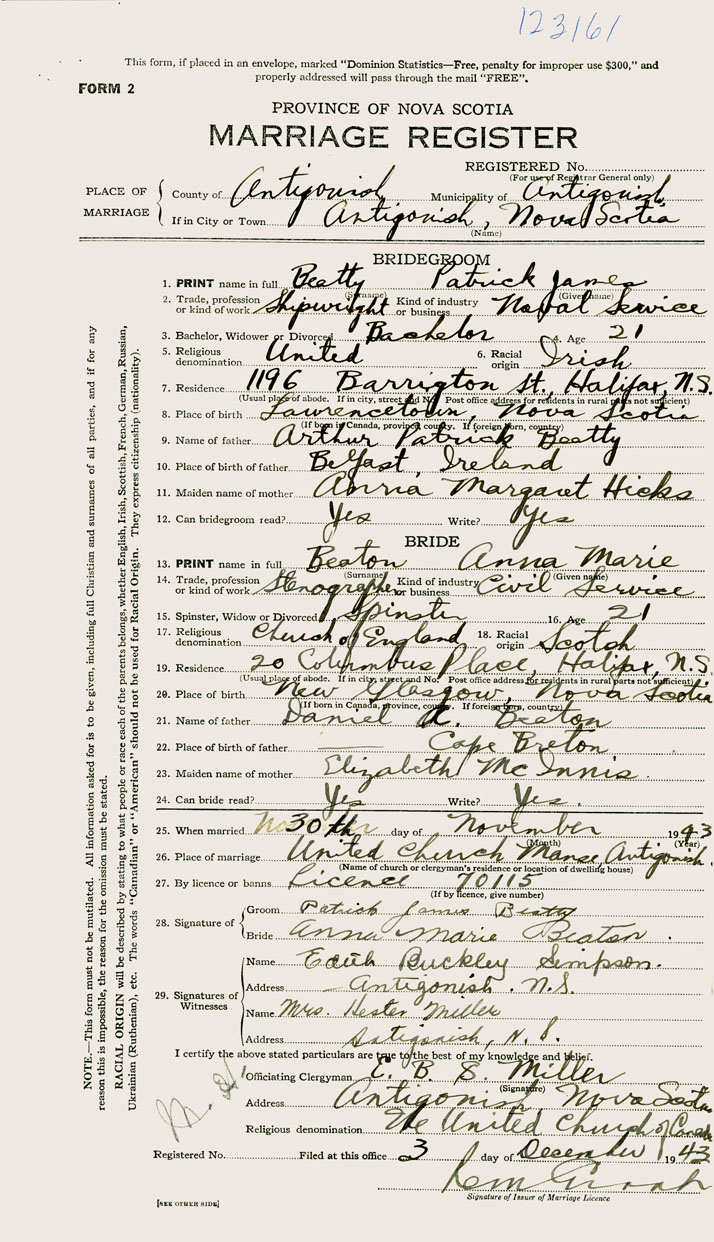 123161
This form, if placed in an envelope, marked "Dominion Statistics—Free, penalty for improper use $300," and
properly addressed will pass through the mail "FREE".
FORM 2
PROVINCE OF NOVA SCOTIA
MARRIAGE REGISTER
REGISTERED No.
(For use of Registrar General only)
PLACE OF MARRIAGE
County of Antigonish Municipality of Antigonish
If in City or Town Antigonish, Nova Scotia
(Name)
BRIDEGROOM
1. PRINT name in full Beatty Patrick James
(Surname) (Given name)
2. Trade, profession or kind of work Shipwright Kind of industry or business Naval Service
3. Bachelor, Widower or Divorced Bachelor 4. Age 21
5. Religious denomination United 6. Racial origin Irish
7. Residence 1196 Barrington St., Halifax, N.S.
(Usual place of abode. If in city, street and No. Post office address for residents in rural parts not sufficient)
8. Place of birth Lawrencetown, Nova Scotia
(If born in Canada, province, county. If foreign born, country)
9. Name of father Arthur Patrick Beatty
10. Place of birth of father Belfast, Ireland
11. Maiden name of mother Annia Margaret Hicks
12. Can bridegroom read? Yes Write? Yes
BRIDE
13. PRINT name in full Beaton Anna Marie
(Surname) (Given name)
14. Trade, profession or kind of work Stenographer Kind of industry or business Civil Service
15. Spinster, Widow or Divorced Spinster 16. Age 21
17. Religious denomination Church of England 18. Racial origin Scotch
19. Residence 20 Columbus Place, Halifax, N.S.
(Usual place of abode. If in city, street and No. Post office address for residents in rural parts not sufficient)
20. Place of birth New Glasgow, Nova Scotia
(If born in Canada, province, county. If foreign born, country)
21. Name of father Daniel Beaton
22. Place of birth of father Cape Breton
23. Maiden name of mother Elizabeth McInnis
24. Can bride read? Yes Write? Yes.
25. When married 30th day of November 1943
(Month) (Year)
26. Place of marriage United Church Manse, Antigonish.
(Name of church or clergyman's residence or location of dwelling house)
27. By licence or banns Licence 70115
(If by licence, give number)
28. Signature of
Groom Patrick James Beatty
Bride Anna Marie Beaton.
29. Signatures of Witnesses
Name Edith Buckley Simpson.
Address Antigonish. N.S.
Name Mrs. Hester Miller
Address Antigonish, N.S.
I certify the above stated particulars are true to the best of my knowledge and belief.
Officiating Clergyman C. B. S. Miller
(Signature)
Address Antigonish Nova Scotia
Religious denomination The United Church of Canada
Registered No. Filed at this office 3 day of December 1943
Signature of Issuer of Marriage Licence
[SEE OTHER SIDE]
NOTE.—This form must not be mutilated. All information asked for is to be given, including full Christian and surnames of all parties, and if for any
reason this is impossible, the reason for the omission must be stated.
RACIAL ORIGIN will be described by stating to what people or race each of the parents belongs, whether English, Irish, Scottish, French, German, Russian,
Ukrainian (Ruthenian), etc. The words "Canadian" or "American" should not be used for Racial Origin. They express citizenship (nationality).